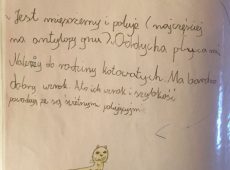 Jest mięsożerny i poluje (najczęściej
na antylopy gnu). Oddycha płucami
Należy do rodziny kotowatych. Ma bardzo
dobry wzrok. Ato ich wzrok i szybkość
powodują że są świetnym